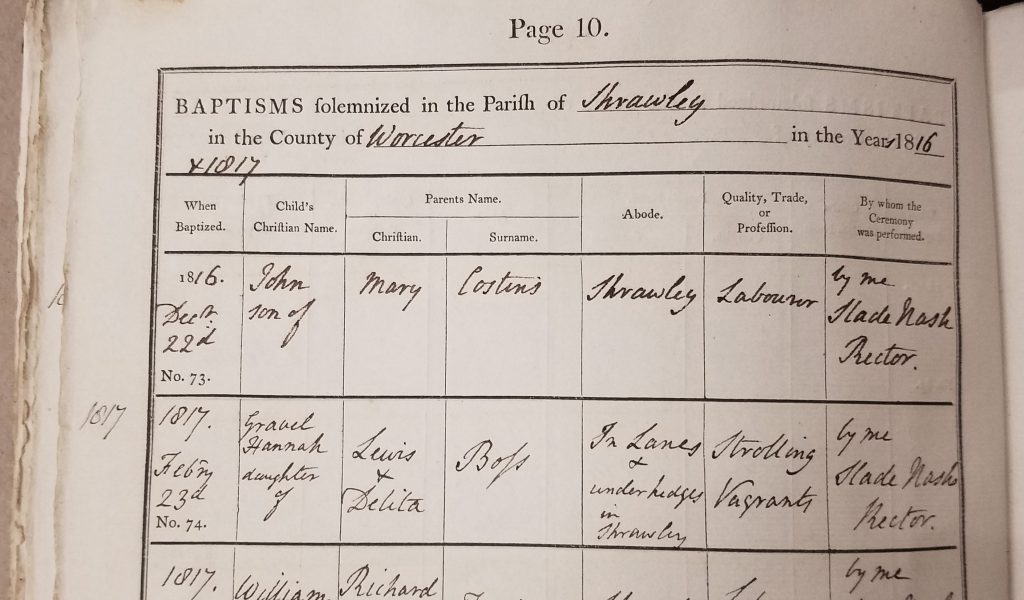 Page 10.
BAPTISMS ſolemnized in the Pariſh of Shrawley
in the County of Worcester in the Years 1816
& 1817
When Baptized.
Child's Chriſtian Name.
Parents Name.
Chriſtian.
Surname.
Abode.
Quality, Trade, or Profeſſion.
By whom the Ceremony was performed.
1816.
Decr.
22d
No. 73.
John
son of
Mary
Costins
Shrawley
Labourer
by me
Slade Nash
Rector.
1817
1817.
Febry
23d
No. 74.
Gravel
Hannah
daughter
of
Lewis
&
Delita
Boſs
In Lanes
&
under hedges
in
Shrawley
Strolling
Vagrants
by me
Slade Nash
Rector.
1817.
William
Richard
by me